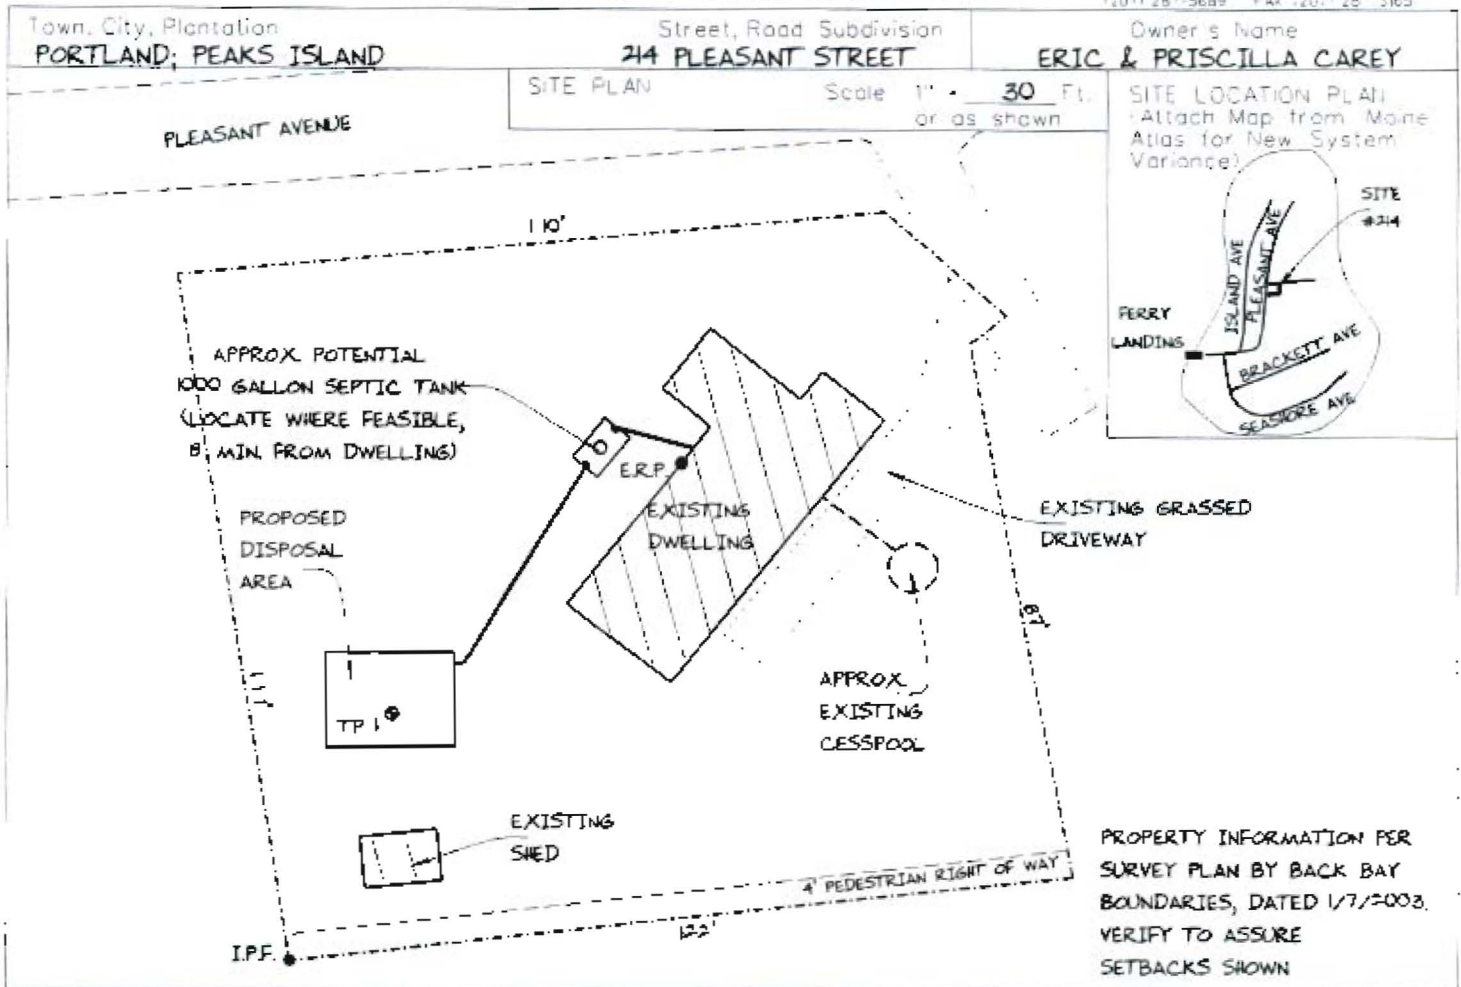 Town, City, Plantation
PORTLAND; PEAKS ISLAND
Street, Road Subdivision
214 PLEASANT STREET
Owner's Name
ERIC & PRISCILLA CAREY
SITE PLAN
Scale 1" = 30 Ft.
or as shown
SITE LOCATION PLAN
(Attach Map from Maine
Atlas for New System
Variance)
PLEASANT AVENUE
110'
SITE
#214
ISLAND AVE
PLEASANT AVE
FERRY
LANDING
BRACKETT AVE
SEASHORE AVE
APPROX. POTENTIAL
1000 GALLON SEPTIC TANK
(LOCATE WHERE FEASIBLE,
8' MIN. FROM DWELLING)
E.R.P.
EXISTING
DWELLING
PROPOSED
DISPOSAL
AREA
EXISTING GRASSED
DRIVEWAY
87'
111'
TP 1
APPROX.
EXISTING
CESSPOOL
EXISTING
SHED
4' PEDESTRIAN RIGHT OF WAY
122'
I.P.F.
PROPERTY INFORMATION PER
SURVEY PLAN BY BACK BAY
BOUNDARIES, DATED 1/7/2003.
VERIFY TO ASSURE
SETBACKS SHOWN